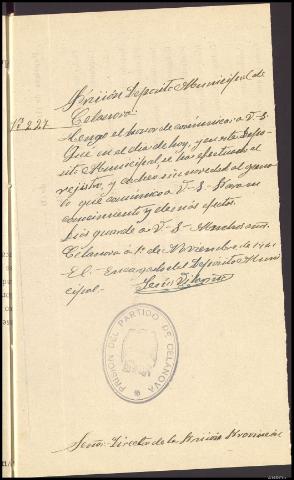 Prisión Deposito Municipal de
Celanova.
Nº 227
Tengo el honor de comunicar a V-S.
Que en el dia de hoy, y en este Depo-
sito Municipal se ha efectuado el
registro, y cacheo sin novedad
lo que comunico a V-S- Para su
conocimiento y demás efectos.
Dios guarde a V-S- Muchos años.
Celanova a 1º de Noviembre de 1941
El Encargado del Deposito Muni
cipal.
PRISION DEL PARTIDO DE CELANOVA
Señor Director de la Prisión Provincial